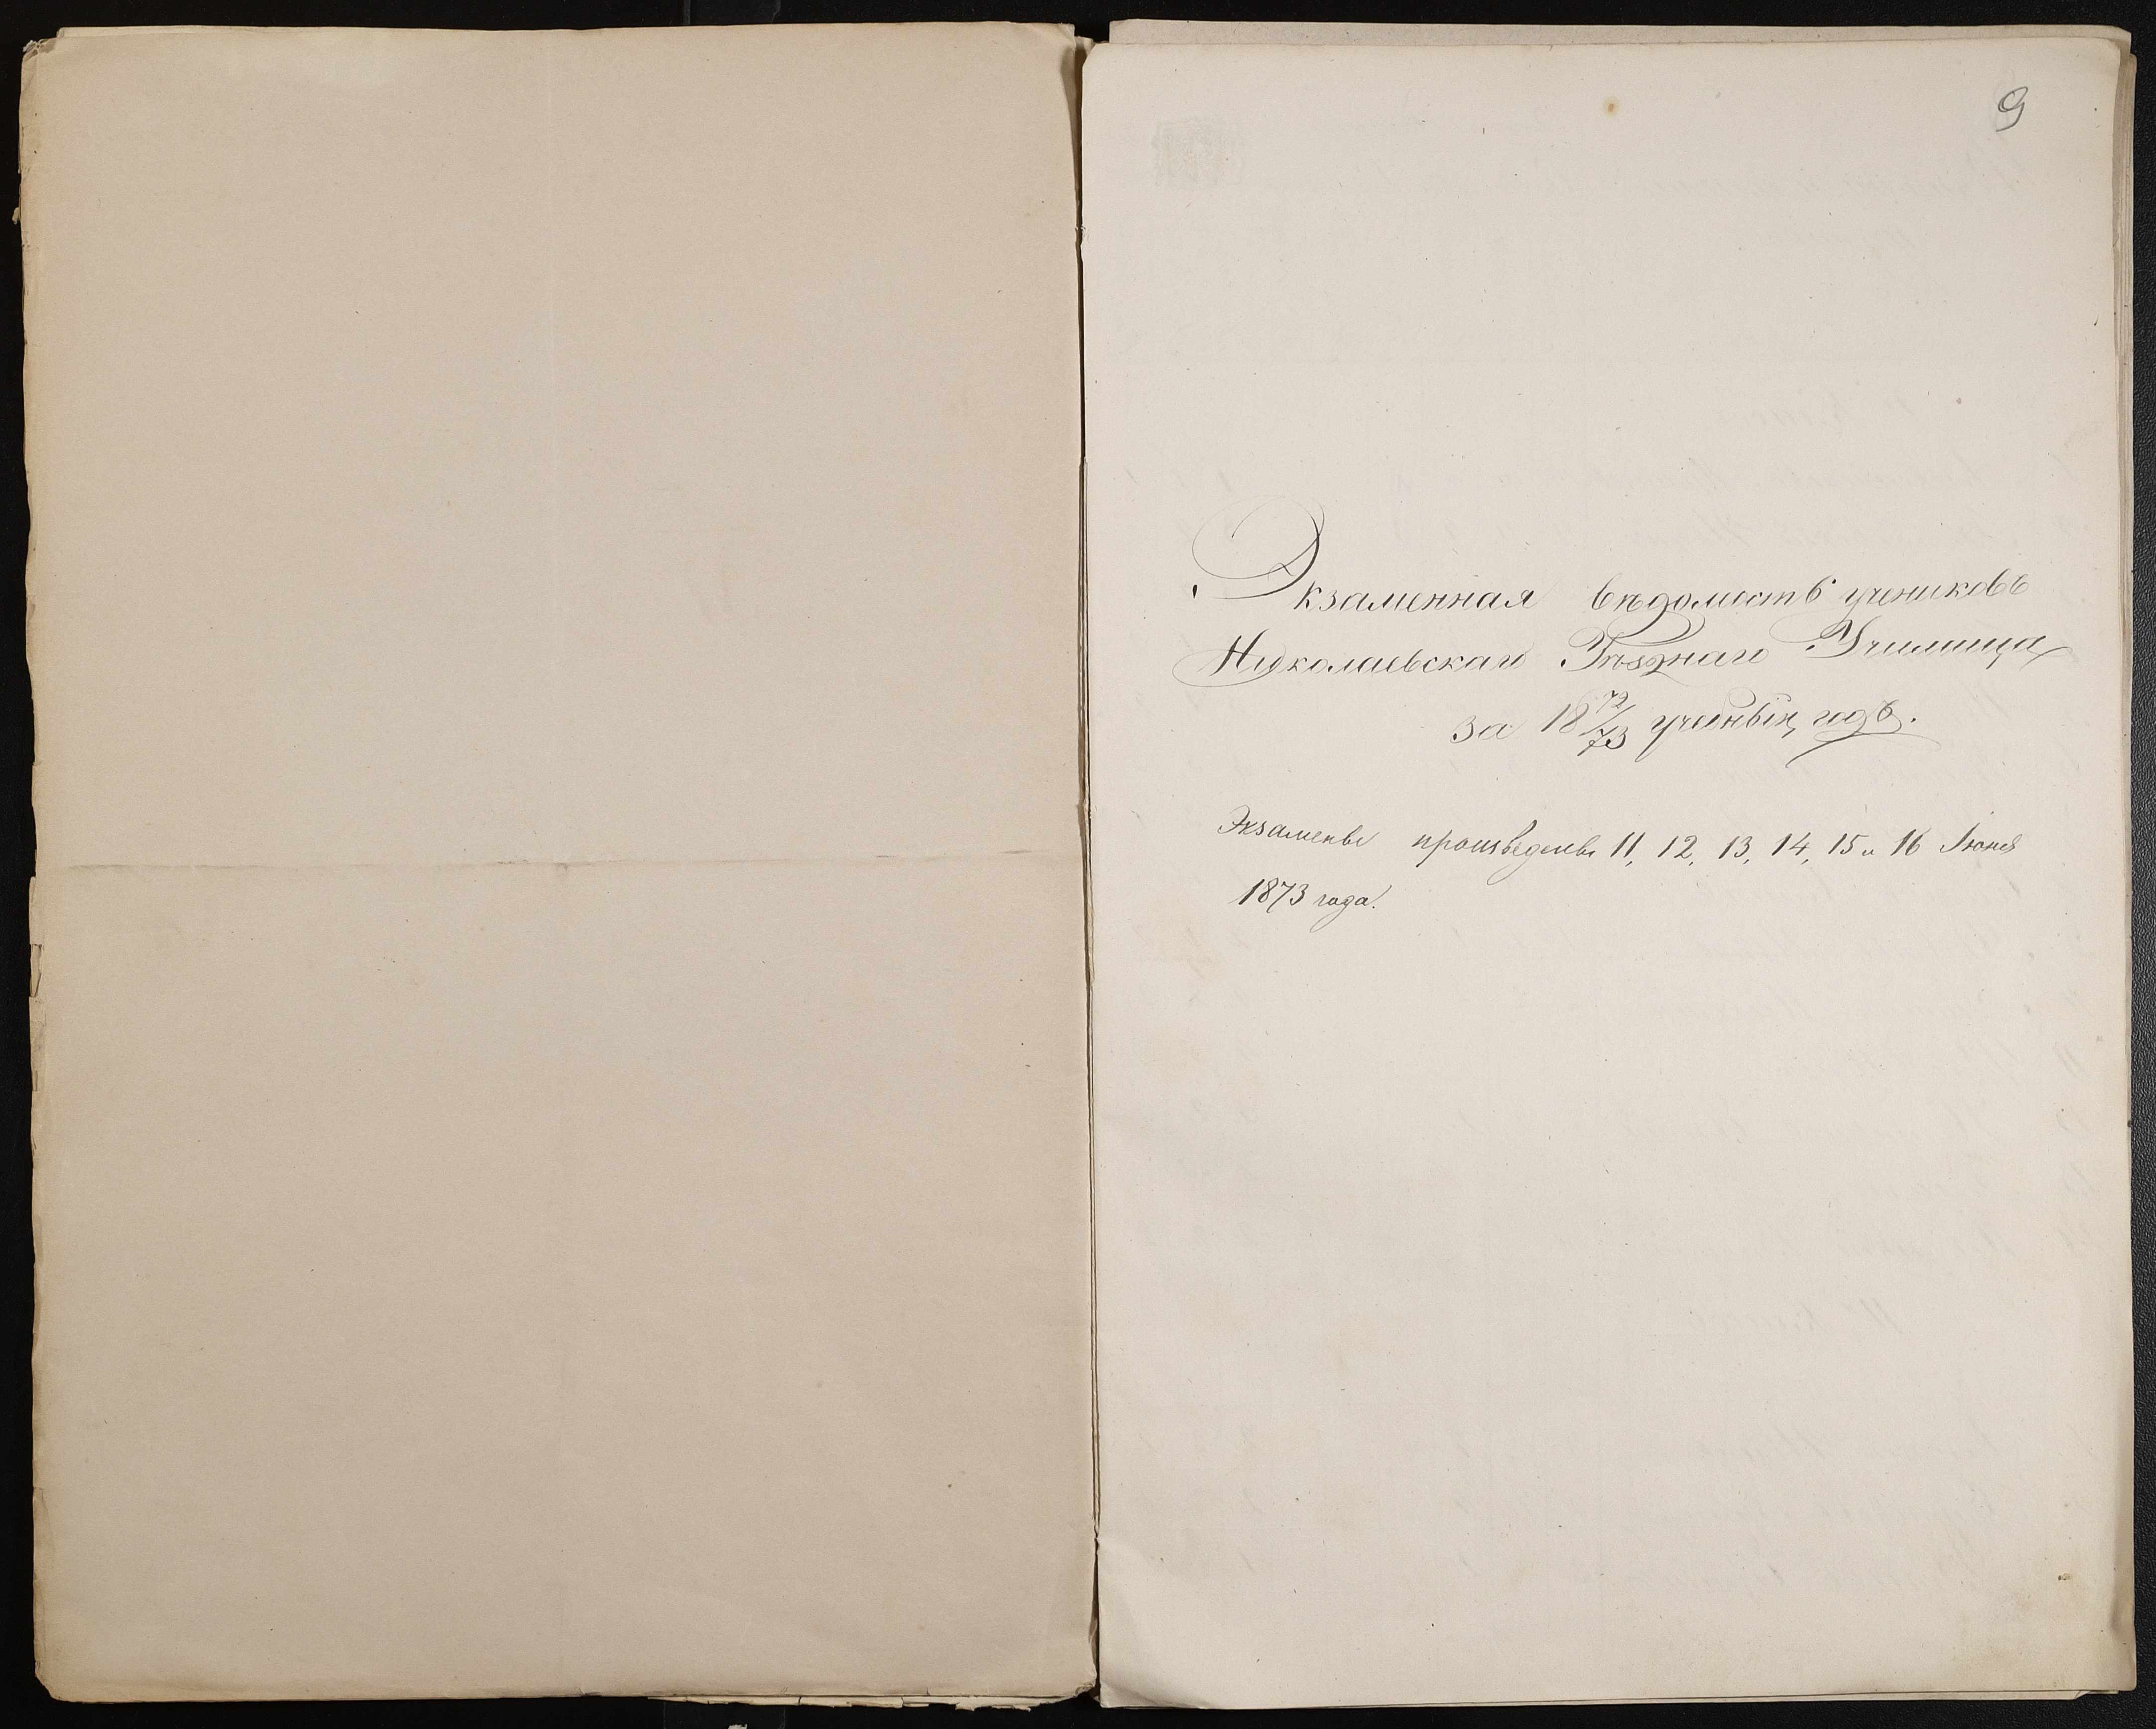 9
Экзаменная вѣдомость учениковъ
Николаевскаго Уѣзднаго Училища
за 18 72/73 учебный годъ.
Экзамены произведены 11, 12, 13, 14, 15 и 16 Іюня
1873 года.